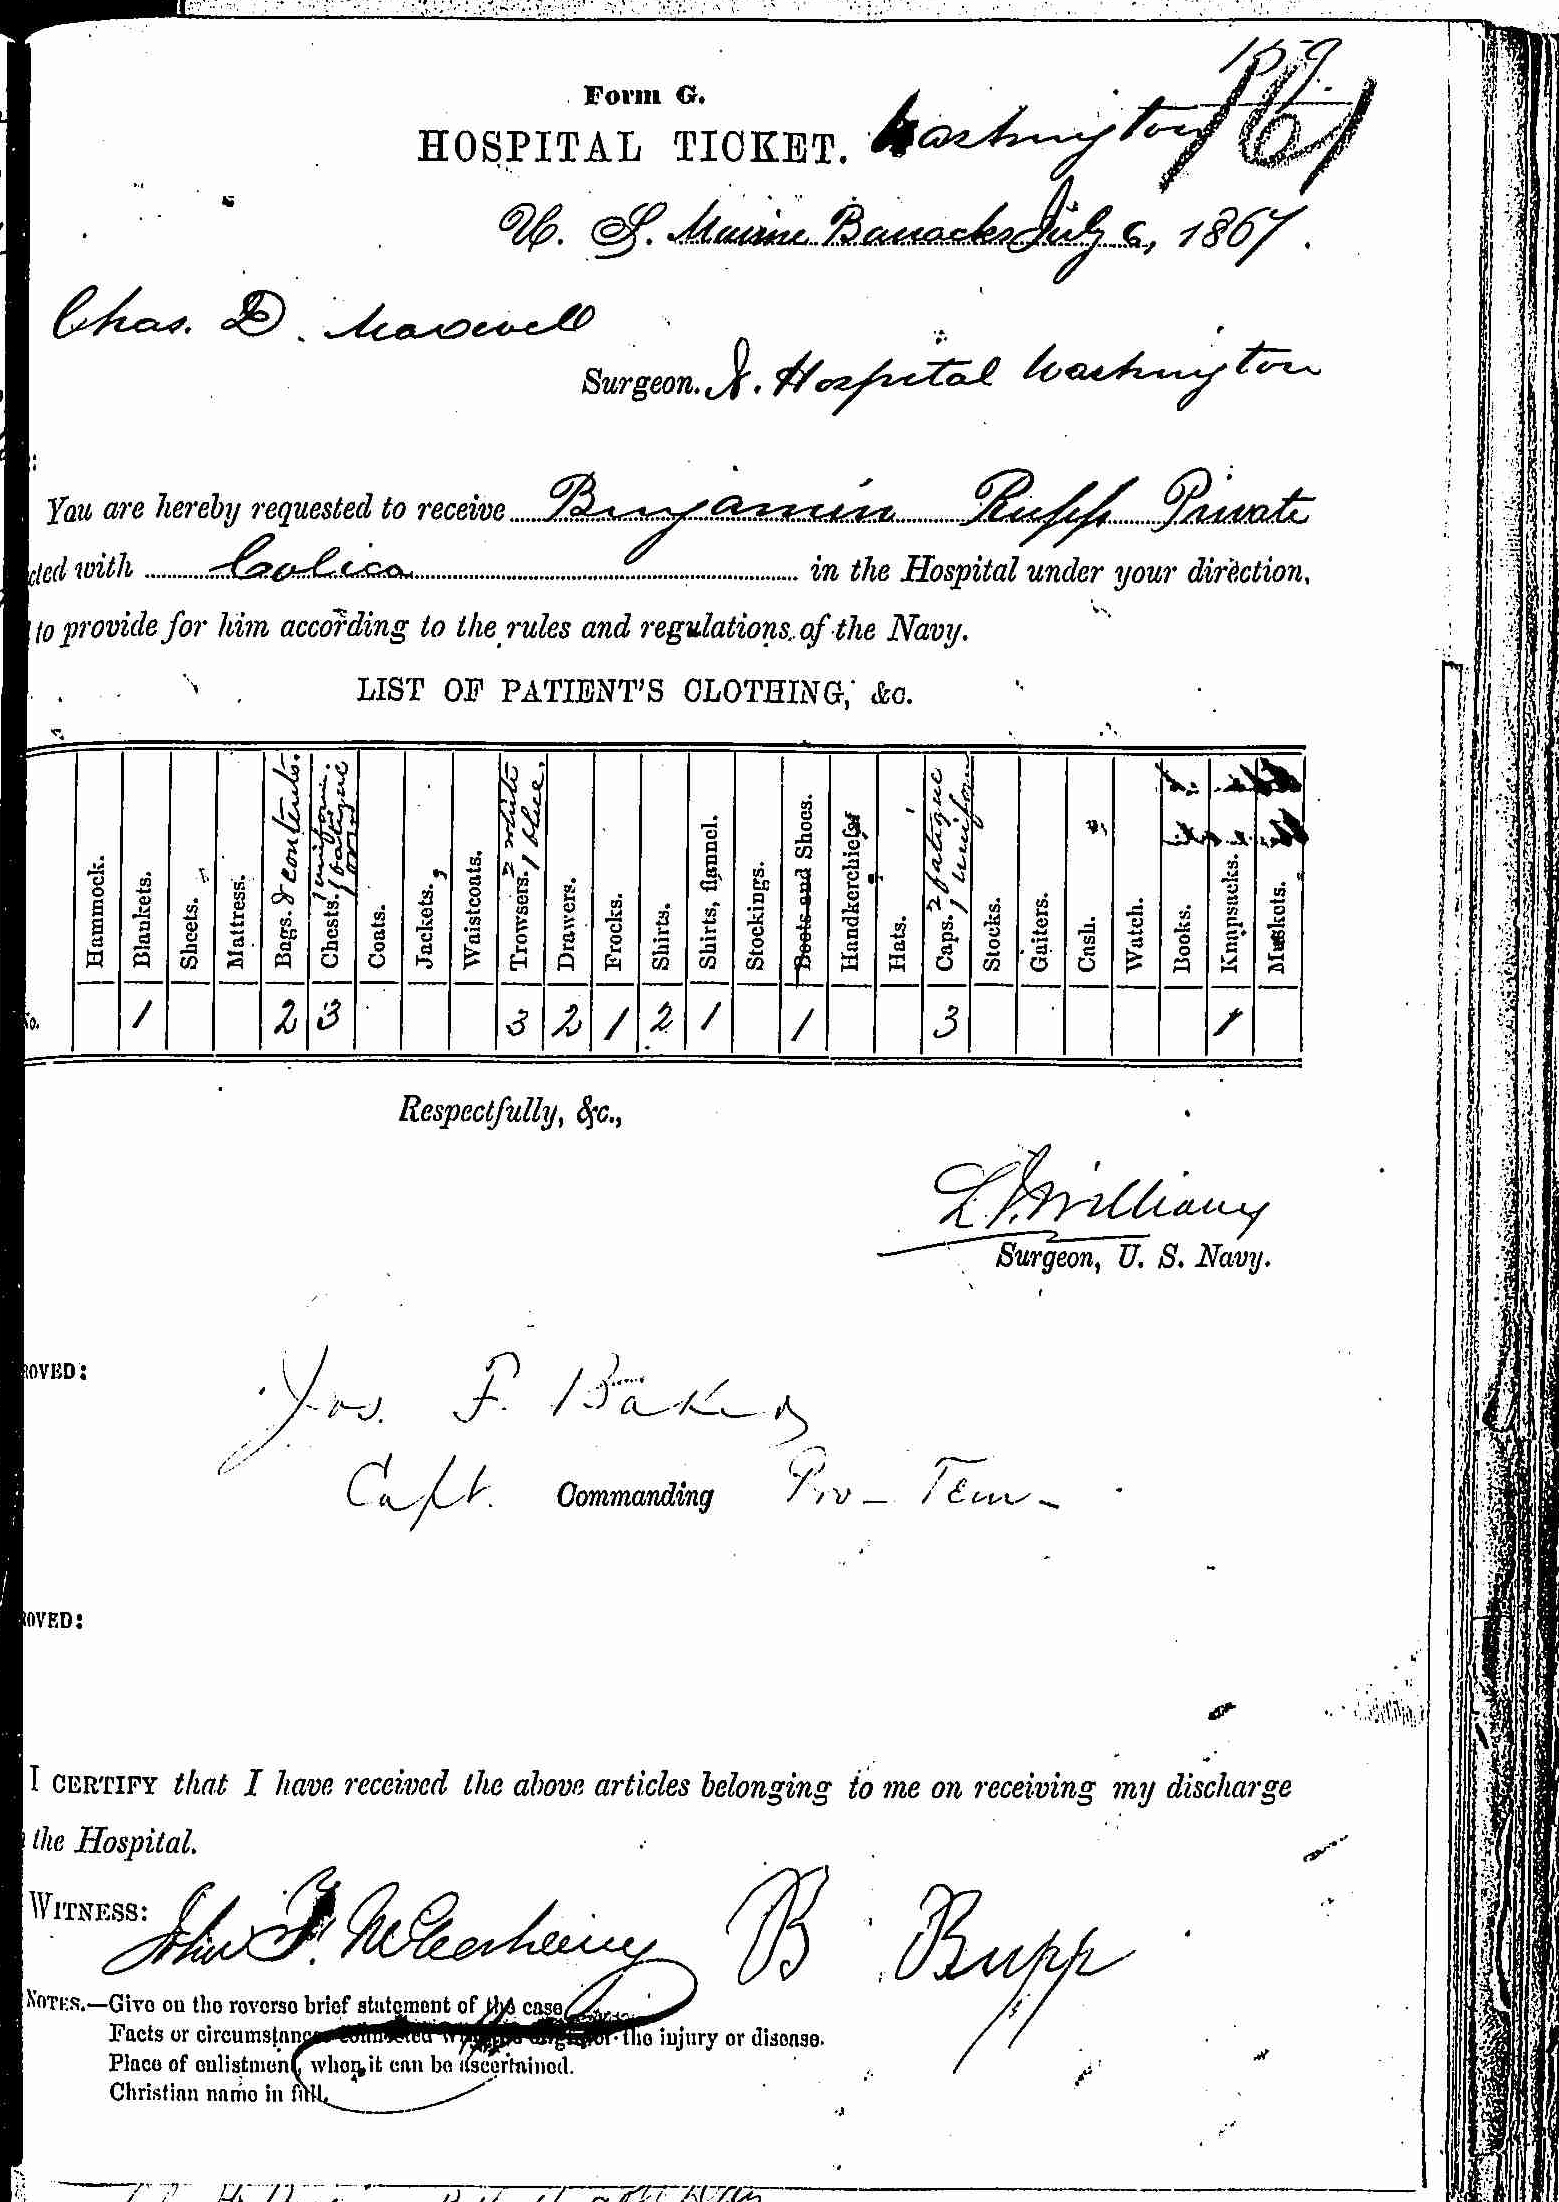 159.
161
Form G.
HOSPITAL TICKET. Washington
U. S. Marine Barracks July 6, 1867.
Chas. D. Maxwell
Surgeon. N. Hospital Washington
You are hereby requested to receive Benjamin Rupp Private
cted with Colica in the Hospital under your direction,
to provide for him according to the rules and regulations of the Navy.
LIST OF PATIENT'S CLOTHING, &c.
Hammock. Blankets. Sheets. Mattress. Bags. & contents. Chests. 1 uniform. 2 fatigue Coats. Jackets. Waistcoats. Trowsers. 2 white 1 blue. Drawers. Frocks. Shirts. Shirts, flannel. Stockings. Boots and Shoes. Handkerchiefs Hats. Caps. 2 fatigue 1 uniform Stocks. Gaiters. Cash. Watch. Books. Knapsacks. Muskets.
No. 1 2 3 3 2 1 2 1 1 3 1
Respectfully, &c.,
Williams
Surgeon, U. S. Navy.
ROVED:
Jos. F. Baker
Capt. Commanding Pro-Tem-
ROVED:
I CERTIFY that I have received the above articles belonging to me on receiving my discharge
the Hospital.
WITNESS: John F. B Bupp
NOTES.—Give on the reverse brief statement of the case.
Facts or circumstances connected with the origin of the injury or disease.
Place of enlistment, when it can be ascertained.
Christian name in full.